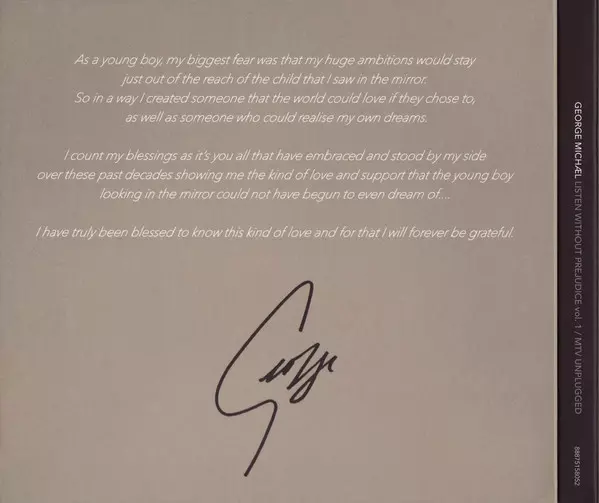 As a young boy, my biggest fear was that my huge ambitions would stay
just out of the reach of the child that I saw in the mirror.
So in a way I created someone that the world could love if they chose to,
as well as someone who could realise my own dreams.
I count my blessings as it's you all that have embraced and stood by my side
over these past decades showing me the kind of love and support that the young boy
looking in the mirror could not have begun to even dream of....
I have truly been blessed to know this kind of love and for that I will forever be grateful.
George
GEORGE MICHÆL LISTEN WITHOUT PREJUDICE vol. 1 / MTV UNPLUGGED
88875158052